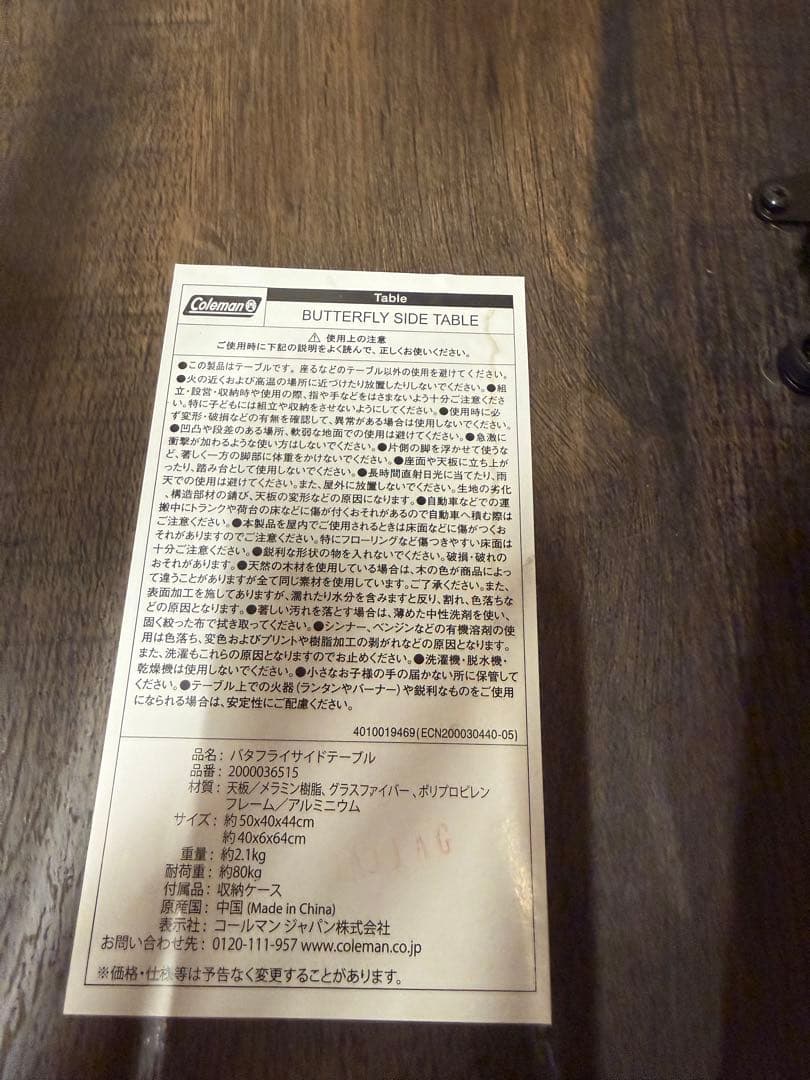 Coleman
Table
BUTTERFLY SIDE TABLE
⚠ 使用上の注意
ご使用時に下記の説明をよく読んで、正しくお使いください。
●この製品はテーブルです。座るなどのテーブル以外の使用を避けてください。
●火の近くおよび高温の場所に近づけたり放置したりしないでください。●組
立・設営・収納時や使用の際、指や手などをはさまないよう十分ご注意くださ
い。特に子どもには組立や収納をさせないようにしてください。●使用時に必
ず変形・破損などの有無を確認して、異常がある場合は使用しないでください。
●凹凸や段差のある場所、軟弱な地面での使用は避けてください。●急激に
衝撃が加わるような使い方はしないでください。●片側の脚を浮かせて使うな
ど、著しく一方の脚部に体重をかけないでください。●座面や天板に立ち上が
ったり、踏み台として使用しないでください。●長時間直射日光に当てたり、雨
天での使用は避けてください。また、屋外に放置しないでください。生地の劣化
、構造部材の錆び、天板の変形などの原因になります。●自動車などでの運
搬中にトランクや荷台の床などに傷が付くおそれがあるので自動車へ積む際は
ご注意ください。●本製品を屋内でご使用されるときは床面などに傷がつくお
それがありますのでご注意ください。特にフローリングなど傷つきやすい床面は
十分ご注意ください。●鋭利な形状の物を入れないでください。破損・破れの
おそれがあります。●天然の木材を使用している場合は、木の色が商品によっ
て違うことがありますが全て同じ素材を使用しています。ご了承ください。また、
表面加工を施してありますが、濡れたり水分を含みますと反り、割れ、色落ちな
どの原因となります。●著しい汚れを落とす場合は、薄めた中性洗剤を使い、
固く絞った布で拭き取ってください。●シンナー、ベンジンなどの有機溶剤の使
用は色落ち、変色およびプリントや樹脂加工の剥がれなどの原因となります。
また、洗濯もこれらの原因となりますのでお止めください。●洗濯機・脱水機・
乾燥機は使用しないでください。●小さなお子様の手の届かない所に保管して
ください。●テーブル上での火器(ランタンやバーナー)や鋭利なものをご使用
になられる場合は、安定性にご配慮ください。
4010019469(ECN200030440-05)
品名：バタフライサイドテーブル
品番：2000036515
材質：天板／メラミン樹脂、グラスファイバー、ポリプロピレン
フレーム／アルミニウム
サイズ：約50x40x44cm
約40x6x64cm
重量：約2.1kg
耐荷重：約80kg
付属品：収納ケース
原産国：中国 (Made in China)
表示社：コールマン ジャパン株式会社
お問い合わせ先：0120-111-957 www.coleman.co.jp
※価格・仕様等は予告なく変更することがあります。